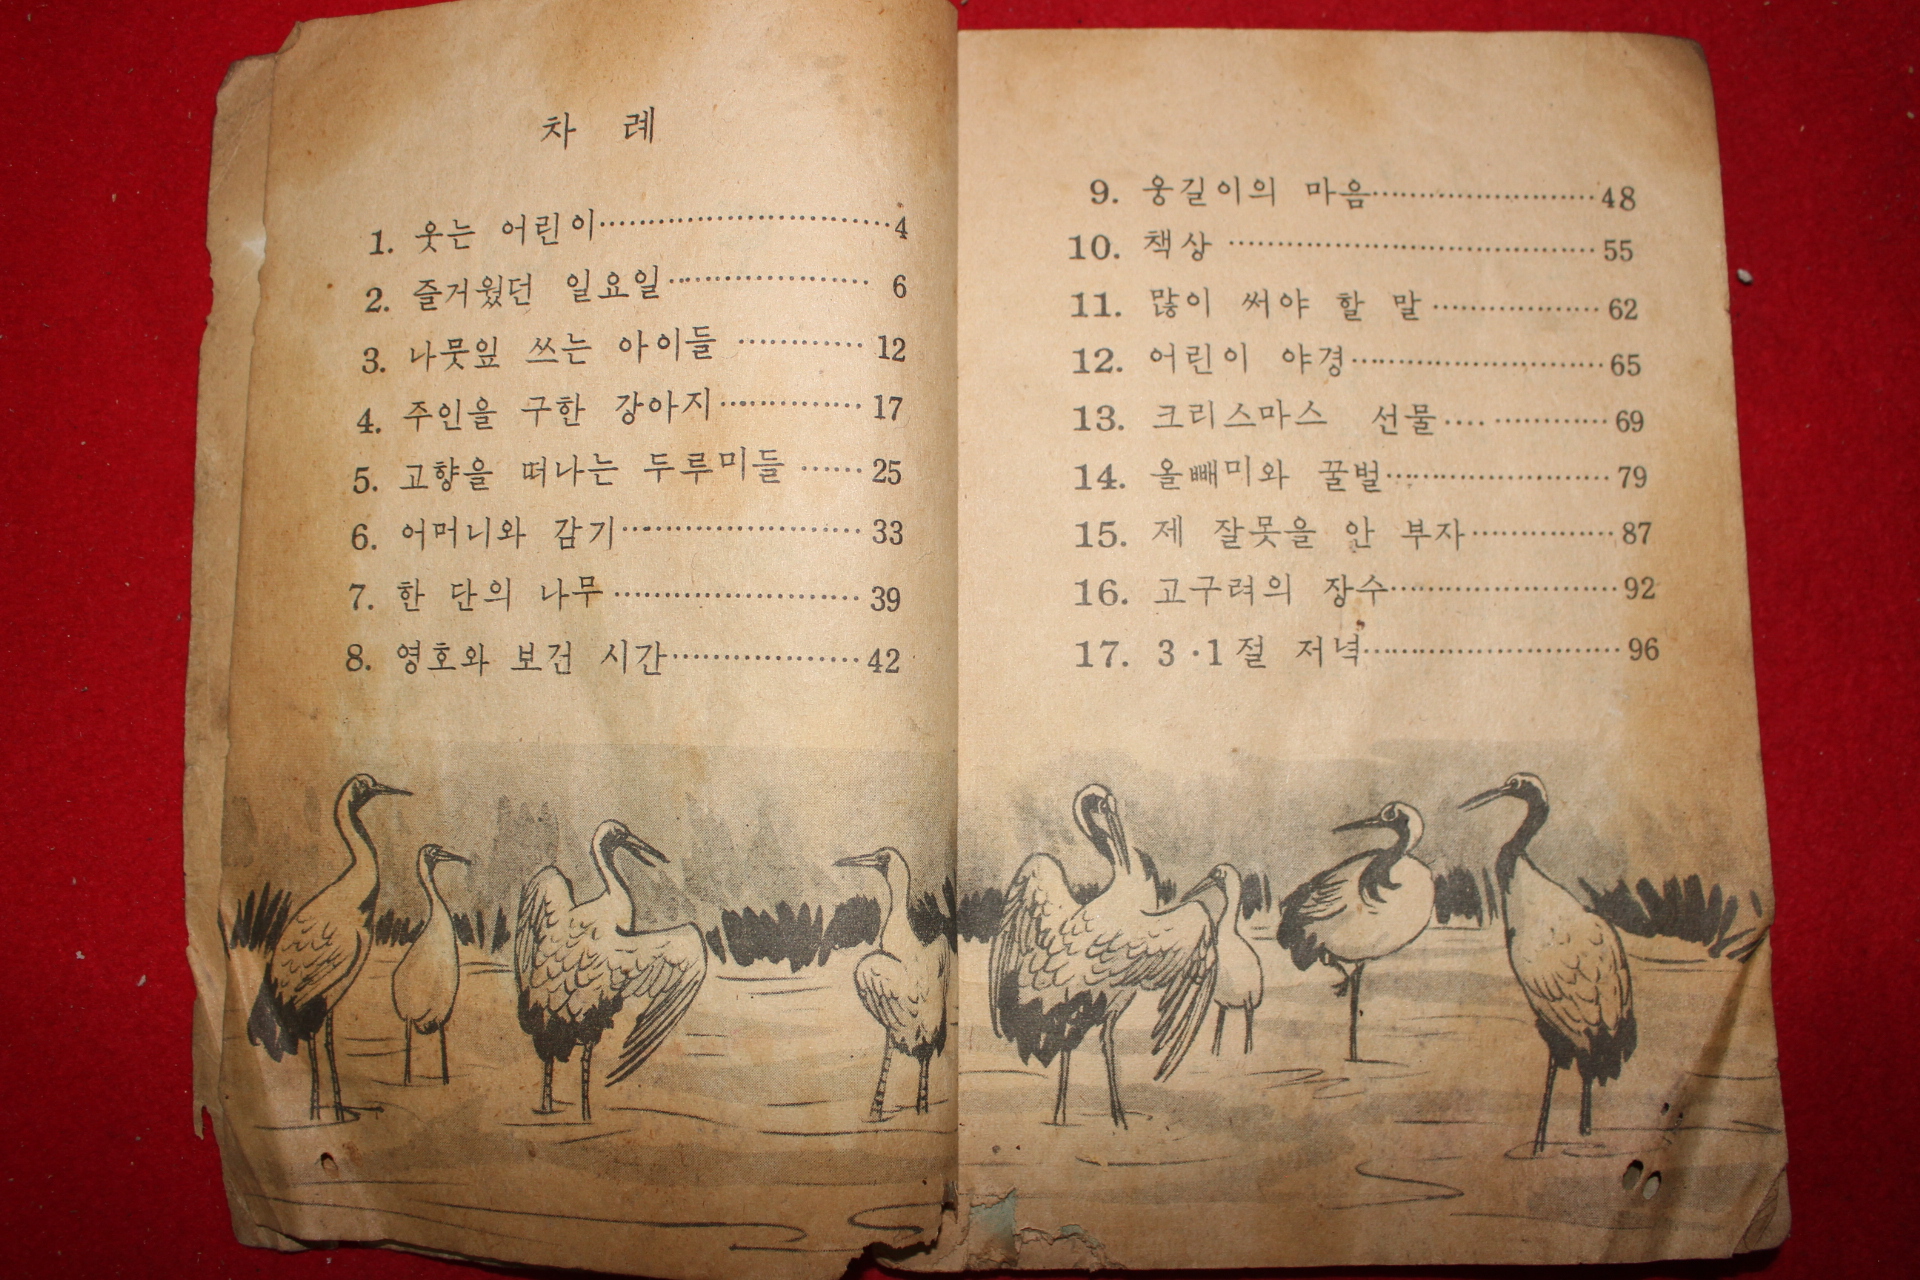 차 례
1. 웃는 어린이……………………………4
2. 즐거웠던 일요일…………………… 6
3. 나뭇잎 쓰는 아이들 …………… 12
4. 주인을 구한 강아지……………… 17
5. 고향을 떠나는 두루미들 …… 25
6. 어머니와 감기……………………… 33
7. 한 단의 나무……………………… 39
8. 영호와 보건 시간…………………42
9. 웅길이의 마음……………………48
10. 책상 ……………………………………55
11. 많이 써야 할 말 …………………62
12. 어린이 야경…………………………65
13. 크리스마스 선물…. …………69
14. 올빼미와 꿀벌………………………79
15. 제 잘못을 안 부자………………87
16. 고구려의 장수………………………92
17. 3·1절 저녁…………………………96